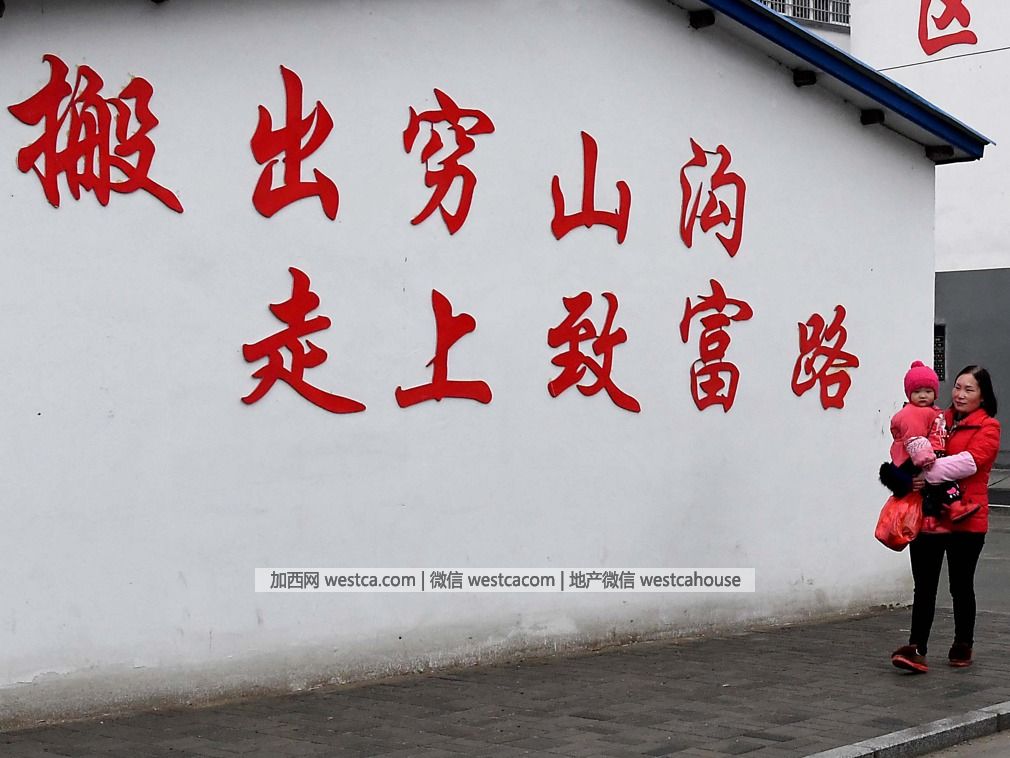 区
搬出穷山沟
走上致富路
加西网 westca.com | 微信 westcacom | 地产微信 westcahouse